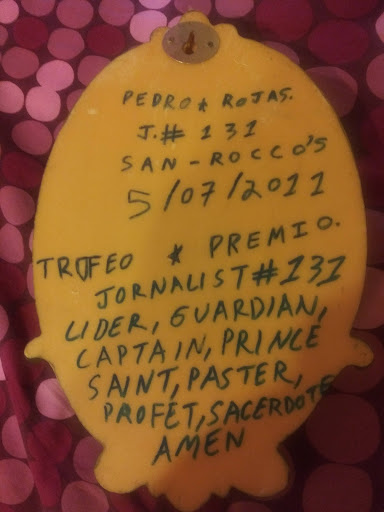 PEDRO * ROJAS.
J.# 131
SAN-ROCCO'S
5/07/2011
TROFEO * PREMIO.
JORNALIST #131
LIDER, GUARDIAN,
CAPTAIN, PRINCE
SAINT, PASTER,
PROFET, SACERDOTE
AMEN